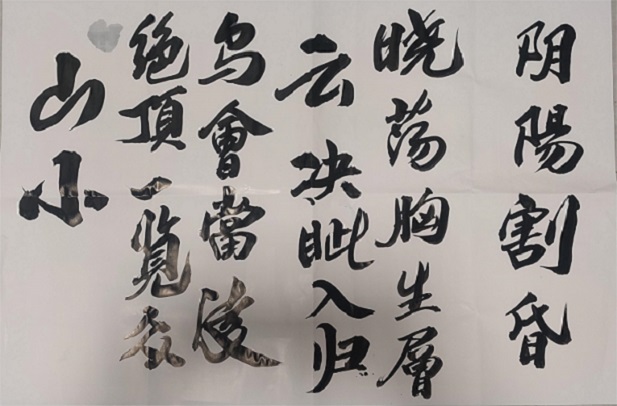 阴陽割昏
晓荡胸生層
云决眦入归
鸟會當凌
绝頂一覧众
山小